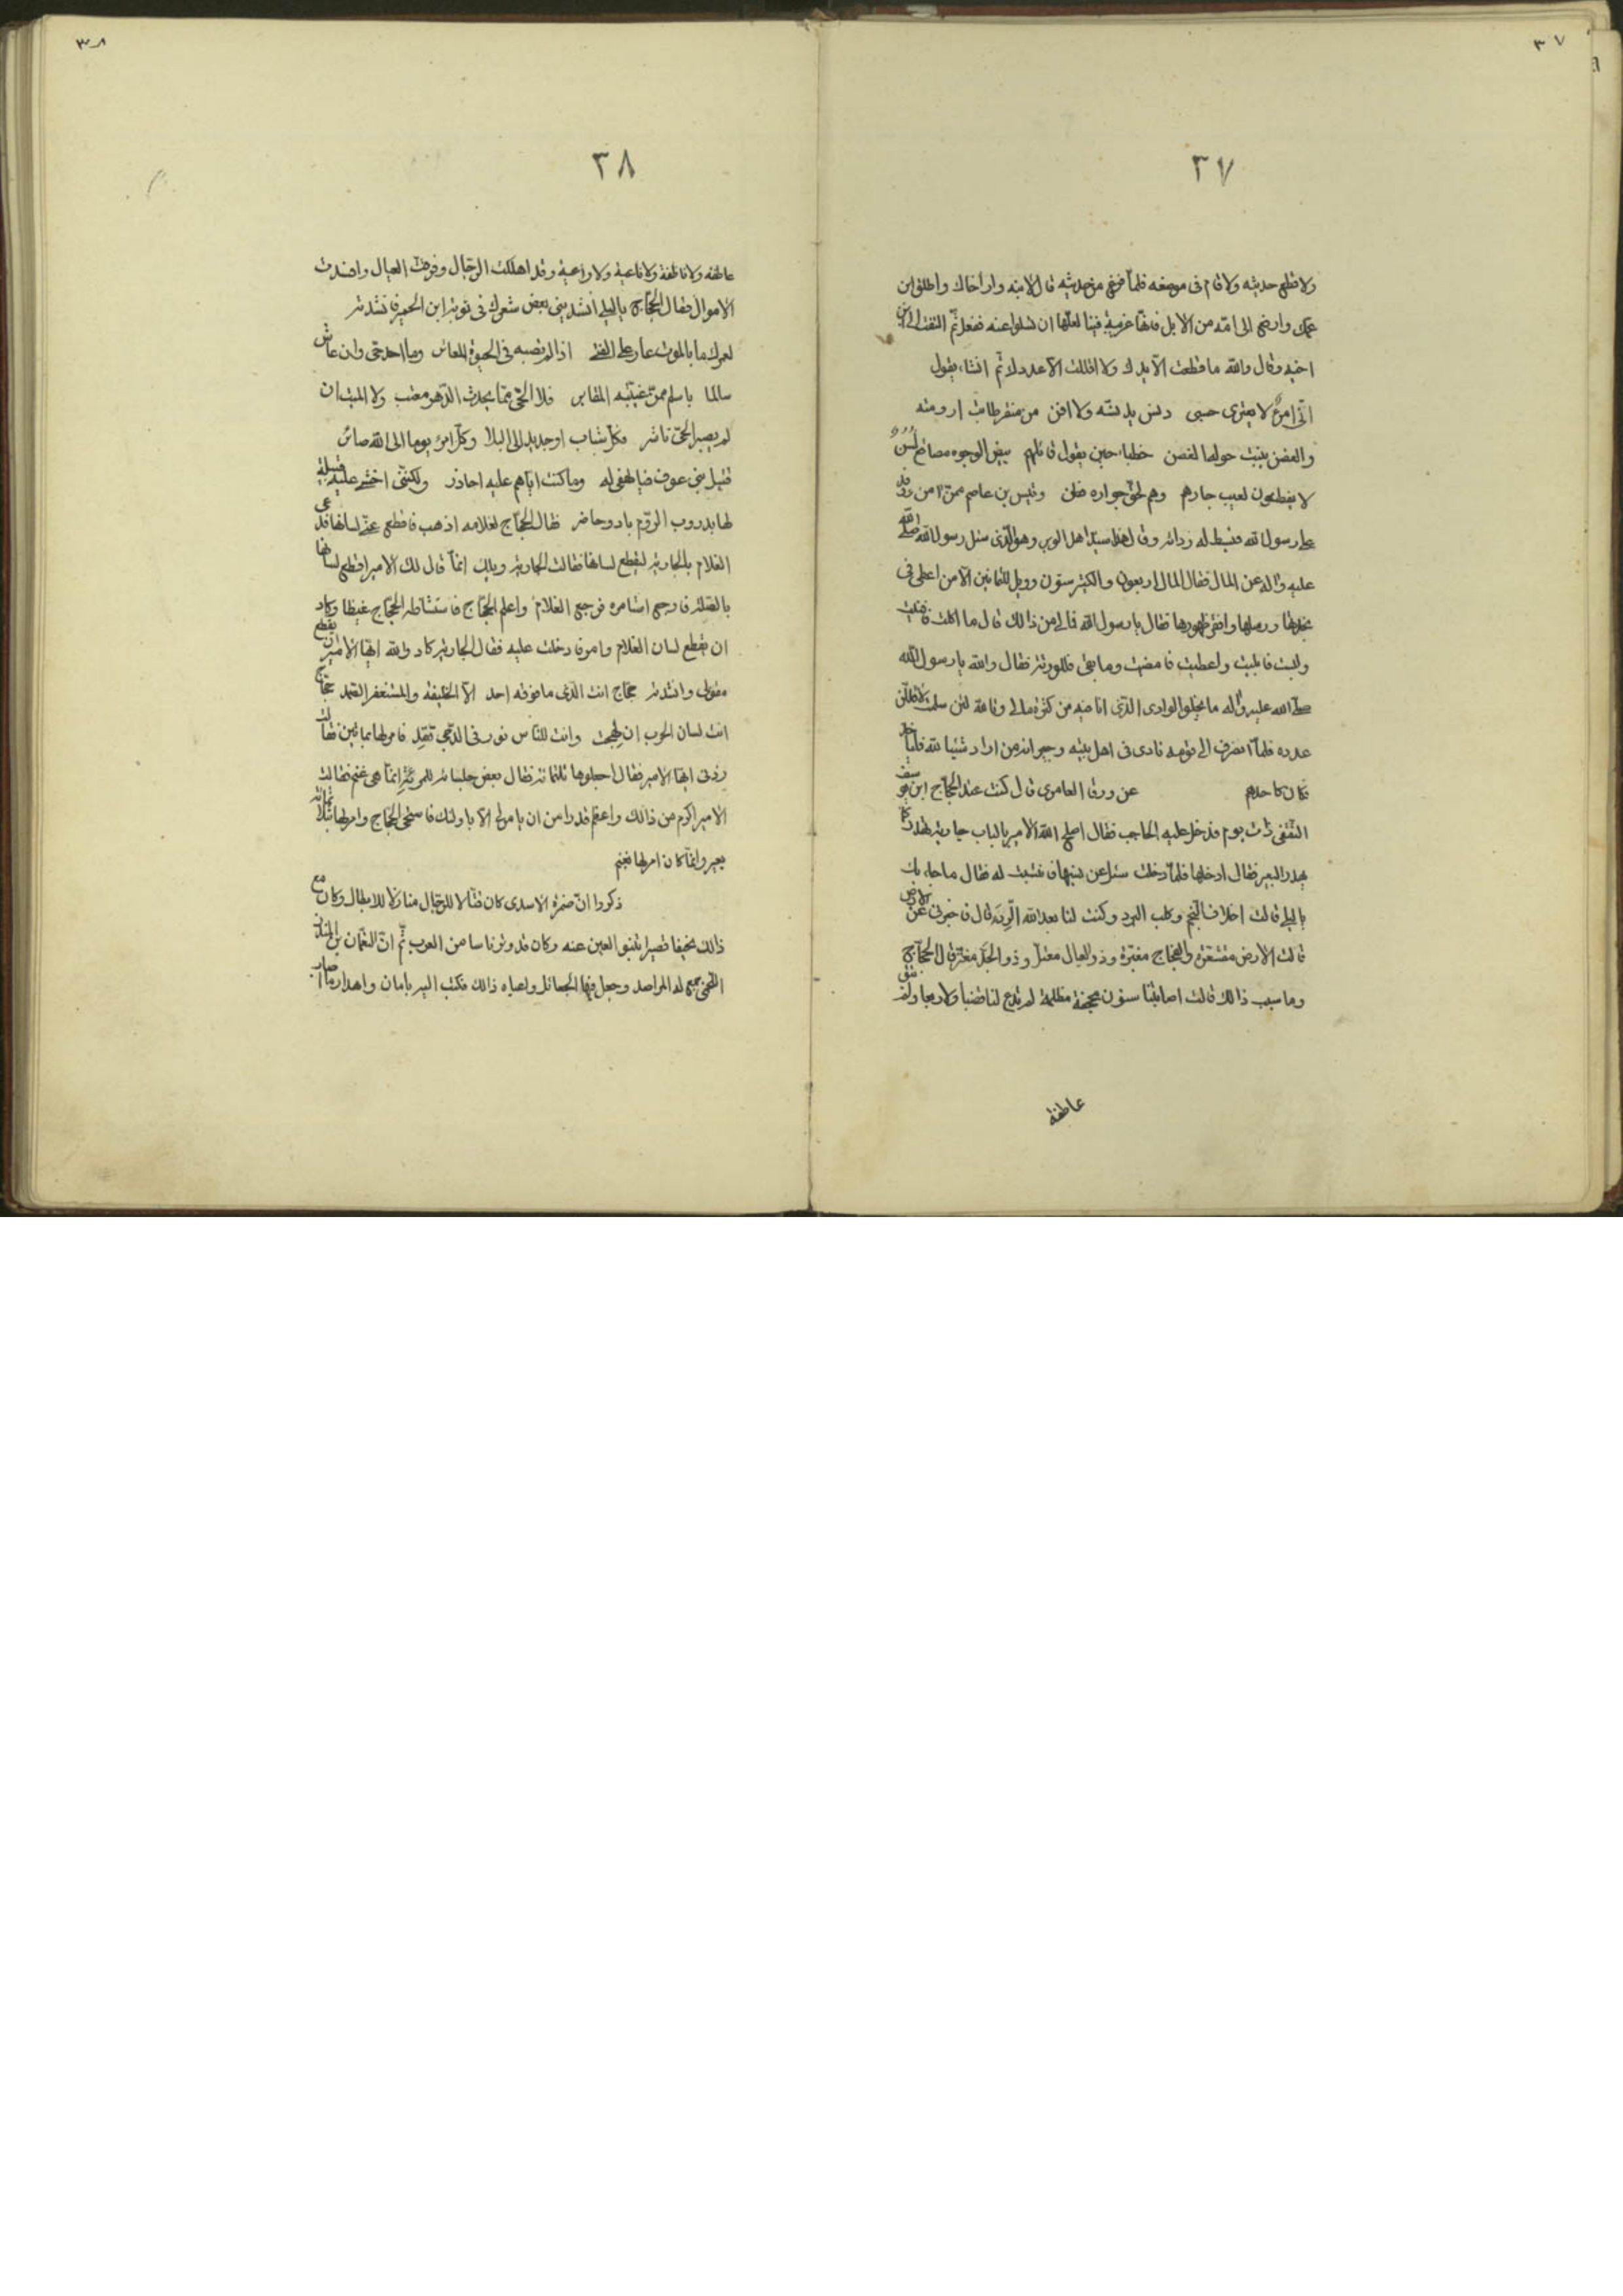 ٣٧
٣٧
ولا قطع حديثه ولا قام فى موضعه فلمّا فرغ من حديثه قال لابنه وار أخاك واطلق ابن
عمك وارض الى امّه من الابل فانها غريبة فينا لعلّها ان تسلوا عنه ففعل ثمّ التفت الى ابن
اخيه وقال والله ما قطعت الّا يدك ولا اقللت الّا عددك ثم انشاء يقول
انّى امرؤٌ لا يعترى حسبى دنس يدنسه ولا افن من منقر طابت ارومته
والغصن ينبت حولها لغصن خطباء حين يقول قائلهم بيض الوجوه مصاقع لُسُنُ
لا يفطنون لعيب جارهم وهم لحق جواره فطن وقيس بن عاصم ممّن وفد
على رسول الله فبسط له ردائه وقال هذا سيّد اهل الوبر وهو الّذى سئل رسول الله صلّى الله
عليه واله عن المال فقال المال اربعون والكثير ستون وويل للمائين الّا من اعطى فى
نجدتها ورسلها وافقر ظهورها فقال يا رسول الله فمالى من ذالك قال ما اكلت فافنيت
ولبست فابليت واعطيت فامضيت وما بقى فللورثة فقال والله يا رسول الله
صلّى الله عليه واله ما يخلوا الوادى الّذى انا فيه من كثرة مالى ولئن سلمت لاقللّن
عدده فلمّا انصرف الى قومه نادى فى اهل بيته وجيرانه من اراد شيئا لله فلياخذ
فكان كاحدهم عن ورقا العامرى قال كنت عند الحجّاج ابن يوسف
الثقفى ذات يوم فدخل عليه الحاجب فقال اصلح الله الامير بالباب جارية تهدر كما
يهدر البعير فقال ادخلها فلمّا دخلت سئل عن نسبها فانتسبت له فقال ما جاء بك
يا ليلى قالت اخلاف النّجم وكلب البرد وكنت لنا بعد الله الّرد قال فاخبرنى عن الارض
قالت الارض مقشعرة والفجاج مغبّرة وذو العيال مختل وذو الجَدّ مغترّ قال الحجّاج
وما سبب ذالك قالت اصابتنا سنون مجحفة مظلمة لم تدع لنا ولا ربعا ولم تبق
عاطفة
٣٨
٣٨
عاطفة ولا نافطة ولا ثاغية ولا راغية وقد اهلكت الرجال وفرقت العيال وافسدت
الاموال فقال الحجّاج يا ليلى انشدينى بعض شعرك فى توبة ابن الحمير فانشدته
لعمرك ما بالموت عار على الفتى اذا لم تصبه فى الحيوة المعائر وما احد حى وان عاش
سالما باسلم ممّن غيّبته المقابر فلا الحىّ ممّا يحدث الدّهر معتب ولا الميت ان
لم يصبر الحىّ ناشر فكلّ شباب او جديد الى البلا وكلّ امرء يوما الى الله صائر
قتيل بنى عوف فيالهفى له وما كنت ايّاهم عليه احاذر ولكنّنى اخشى عليه قبيلة
لها بدروب الرّوم باد وحاضر فقال الحجّاج لغلامه اذهب فاقطع عنّى لسانها فدعى
الغلام بالجارية ليقطع لسانها فقالت الجارية ويلك انّما قال لك الامير اقطع لسانها
بالصلة فارجع استامره فرجع الغلام واعلم الحجّاج فاستشاط الحجّاج غيظا وكاد
ان يقطع لسان الغلام وامر فادخلت عليه فقال الجارية كاد والله ايّها الامير ان يقطع
مقولى وانشدته حجّاج انت الّذى ما فوقه احد الّا الخليفة والمستغفر الصّمد حجّاج
انت لسان الحرب ان لهجت وانت للنّاس نور فى الدّجى تقد فامر لها بمائتين فقالت
زدنى ايّها الامير فقال اجعلوها ثلثمائة فقال بعض جلسائه للمرئة انّما هى غنم فقالت
الامير اكرم من ذالك واعظم قدرا من ان يامر لى الّا بالابل فاستحى الحجّاج وامر لها بثلثمائة
بعير وانّما كان امر لها بغنم
ذكروا انّ ضمرة الاسدى كان قتّالا للرّجال منازلا للابطال وكان مع
ذالك نحيفا قصيرا تنبو العين عنه وكان قد وتر ناسا من العرب ثمّ انّ النّعمان بن المنذر
اللّخمى جمع له المراصد وجعل فيها الجعائل واعياه ذالك فكتب اليه بامان واهدار ما اصاب